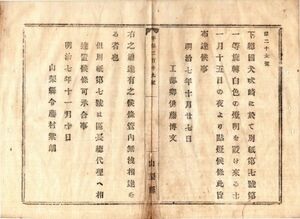 下總國犬吠崎に於て別紙第七號第
一等旋轉白色の燈明を設け來る十
一月十五日の夜より點燈候條此旨
布達候事
明治七年十月廿七日
工部卿伊藤博文
右之通達有之候條管內無洩相達す
る者也
但別紙第七號は區長總代理へ相
達置候條可承合事
明治七年十一月十日
山梨縣令藤村紫朗